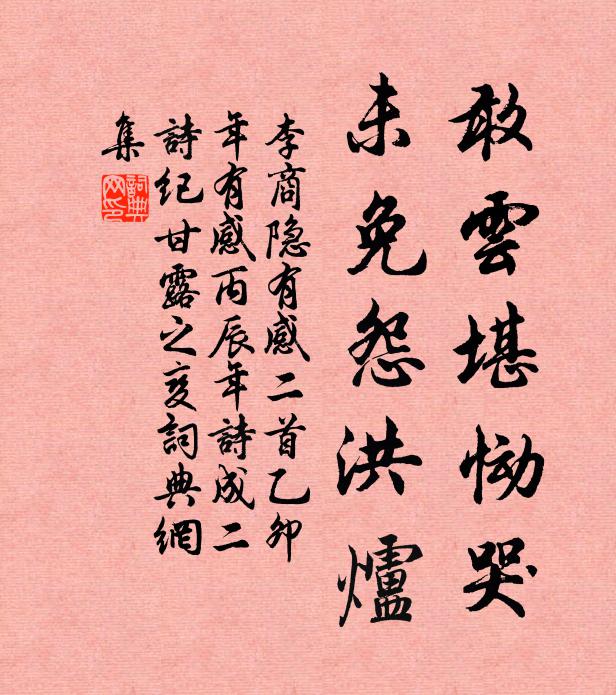 敢雲堪慟哭
未免怨洪爐
李商隐有感二首乙卯
年有感丙辰年詩成二
詩纪甘露之变詞典網
集
詞典网印